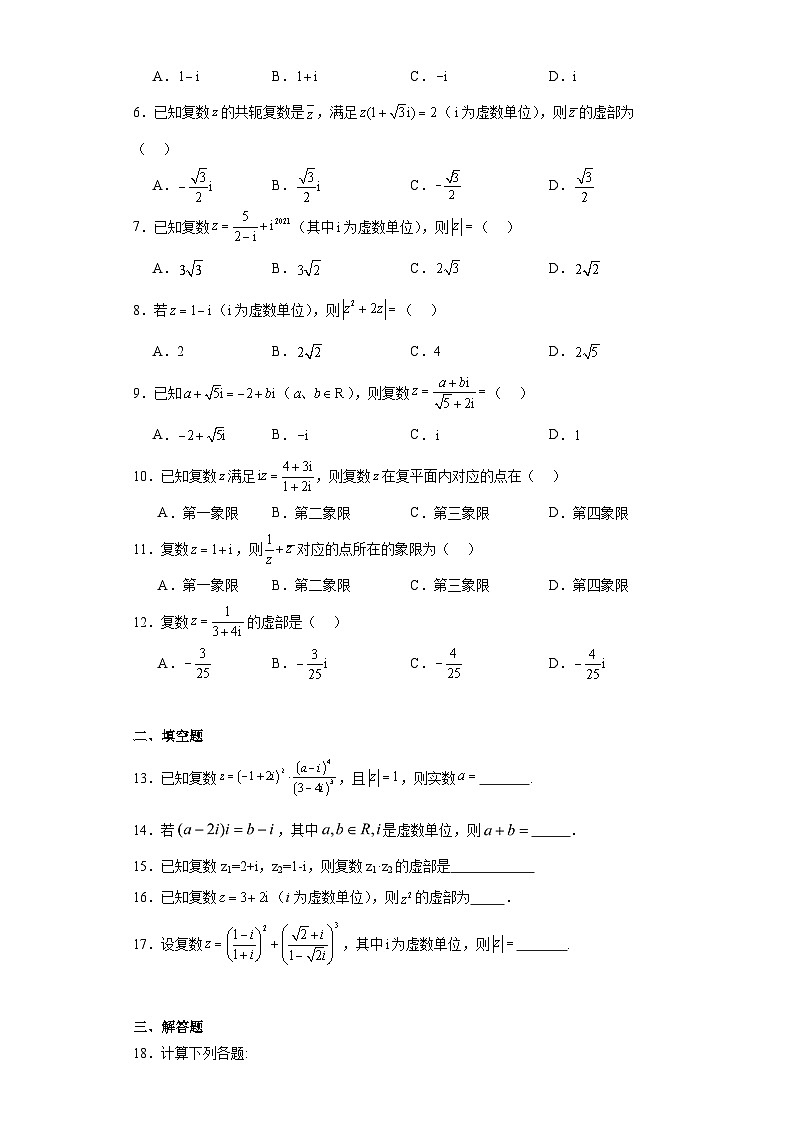 A．1− i　B．1+ i　C．−i　D．i
6．已知复数 z 的共轭复数是 z̅，满足 z(1+ √3i) = 2（ i 为虚数单位），则 z̅ 的虚部为
（　）
A．−√3/2 i　B．√3/2 i　C．−√3/2　D．√3/2
7．已知复数 z = 5/(2− i) + i²⁰²¹（其中 i 为虚数单位），则 |z| =（　）
A．3√3　B．3√2　C．2√3　D．2√2
8．若 z = 1− i（i 为虚数单位），则 |z² + 2z| =（　）
A．2　B．2√2　C．4　D．2√5
9．已知 a+ √5i = −2+ bi（ a、b∈R ），则复数 z = (a+bi)/(√5+2i) =（　）
A．−2+ √5i　B．−i　C．i　D．1
10．已知复数 z 满足 iz = (4+3i)/(1+2i)，则复数 z 在复平面内对应的点在（　）
A．第一象限　B．第二象限　C．第三象限　D．第四象限
11．复数 z = 1+ i，则 1/z + z̅ 对应的点所在的象限为（　）
A．第一象限　B．第二象限　C．第三象限　D．第四象限
12．复数 z = 1/(3+4i) 的虚部是（　）
A．−3/25　B．−3/25 i　C．−4/25　D．−4/25 i
二、填空题
13．已知复数 z = (−1+2i)² · (a−i)⁴/(3−4i)³，且 |z| = 1，则实数 a = ______.
14．若 (a − 2i)i = b − i，其中 a,b ∈ R,i 是虚数单位，则 a + b = _____．
15．已知复数 z₁=2+i，z₂=1-i，则复数 z₁·z₂ 的虚部是___________
16．已知复数 z = 3+ 2i（i 为虚数单位），则 z² 的虚部为_____．
17．设复数 z = ((1−i)/(1+i))² + ((√2+i)/(1−√2i))³，其中 i 为虚数单位，则 |z| = ______.
三、解答题
18．计算下列各题: